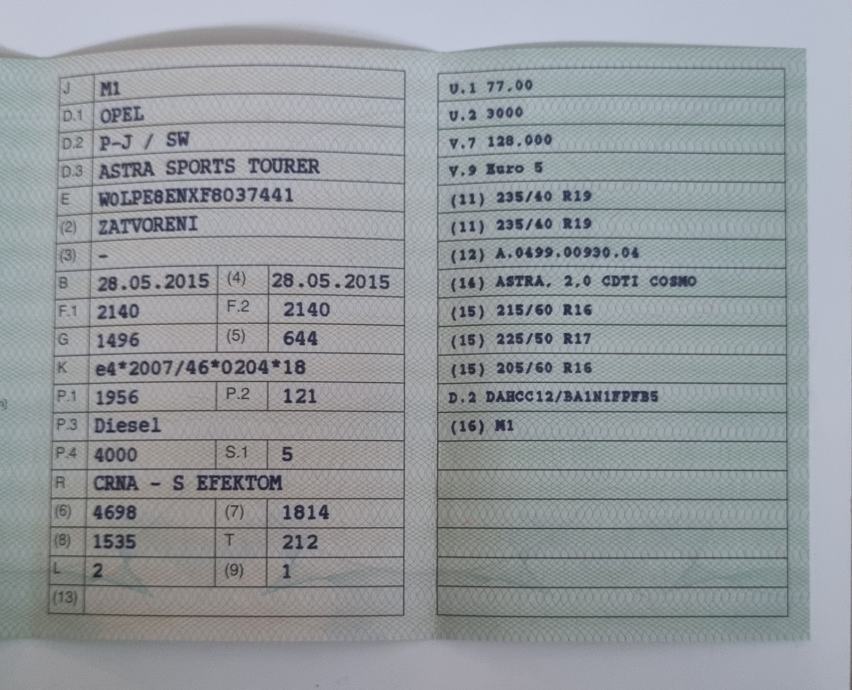 J M1
D.1 OPEL
D.2 P-J / SW
D.3 ASTRA SPORTS TOURER
E W0LPE8ENXF8037441
(2) ZATVORENI
(3) -
B 28.05.2015 (4) 28.05.2015
F.1 2140 F.2 2140
G 1496 (5) 644
K e4*2007/46*0204*18
P.1 1956 P.2 121
P.3 Diesel
P.4 4000 S.1 5
R CRNA - S EFEKTOM
(6) 4698 (7) 1814
(8) 1535 T 212
L 2 (9) 1
(13)
U.1 77.00
U.2 3000
V.7 128.000
V.9 Euro 5
(11) 235/40 R19
(11) 235/40 R19
(12) A.0499.00930.04
(14) ASTRA, 2,0 CDTI COSMO
(15) 215/60 R16
(15) 225/50 R17
(15) 205/60 R16
D.2 DAHCC12/BA1N1FPFB5
(16) M1